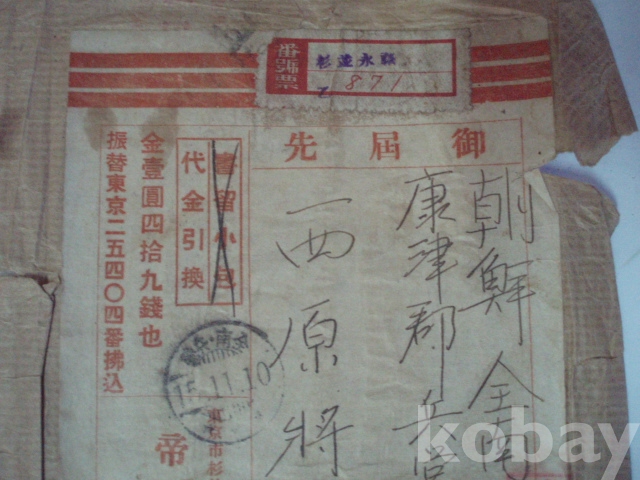 番號票
杉並永福
871
御屆先
朝鮮全南
康津郡兵営
西原將
書留小包
代金引換
金壹圓四拾九錢也
振替東京二五四〇四番拂込
15.11.10
東京市杉
帝
kobay